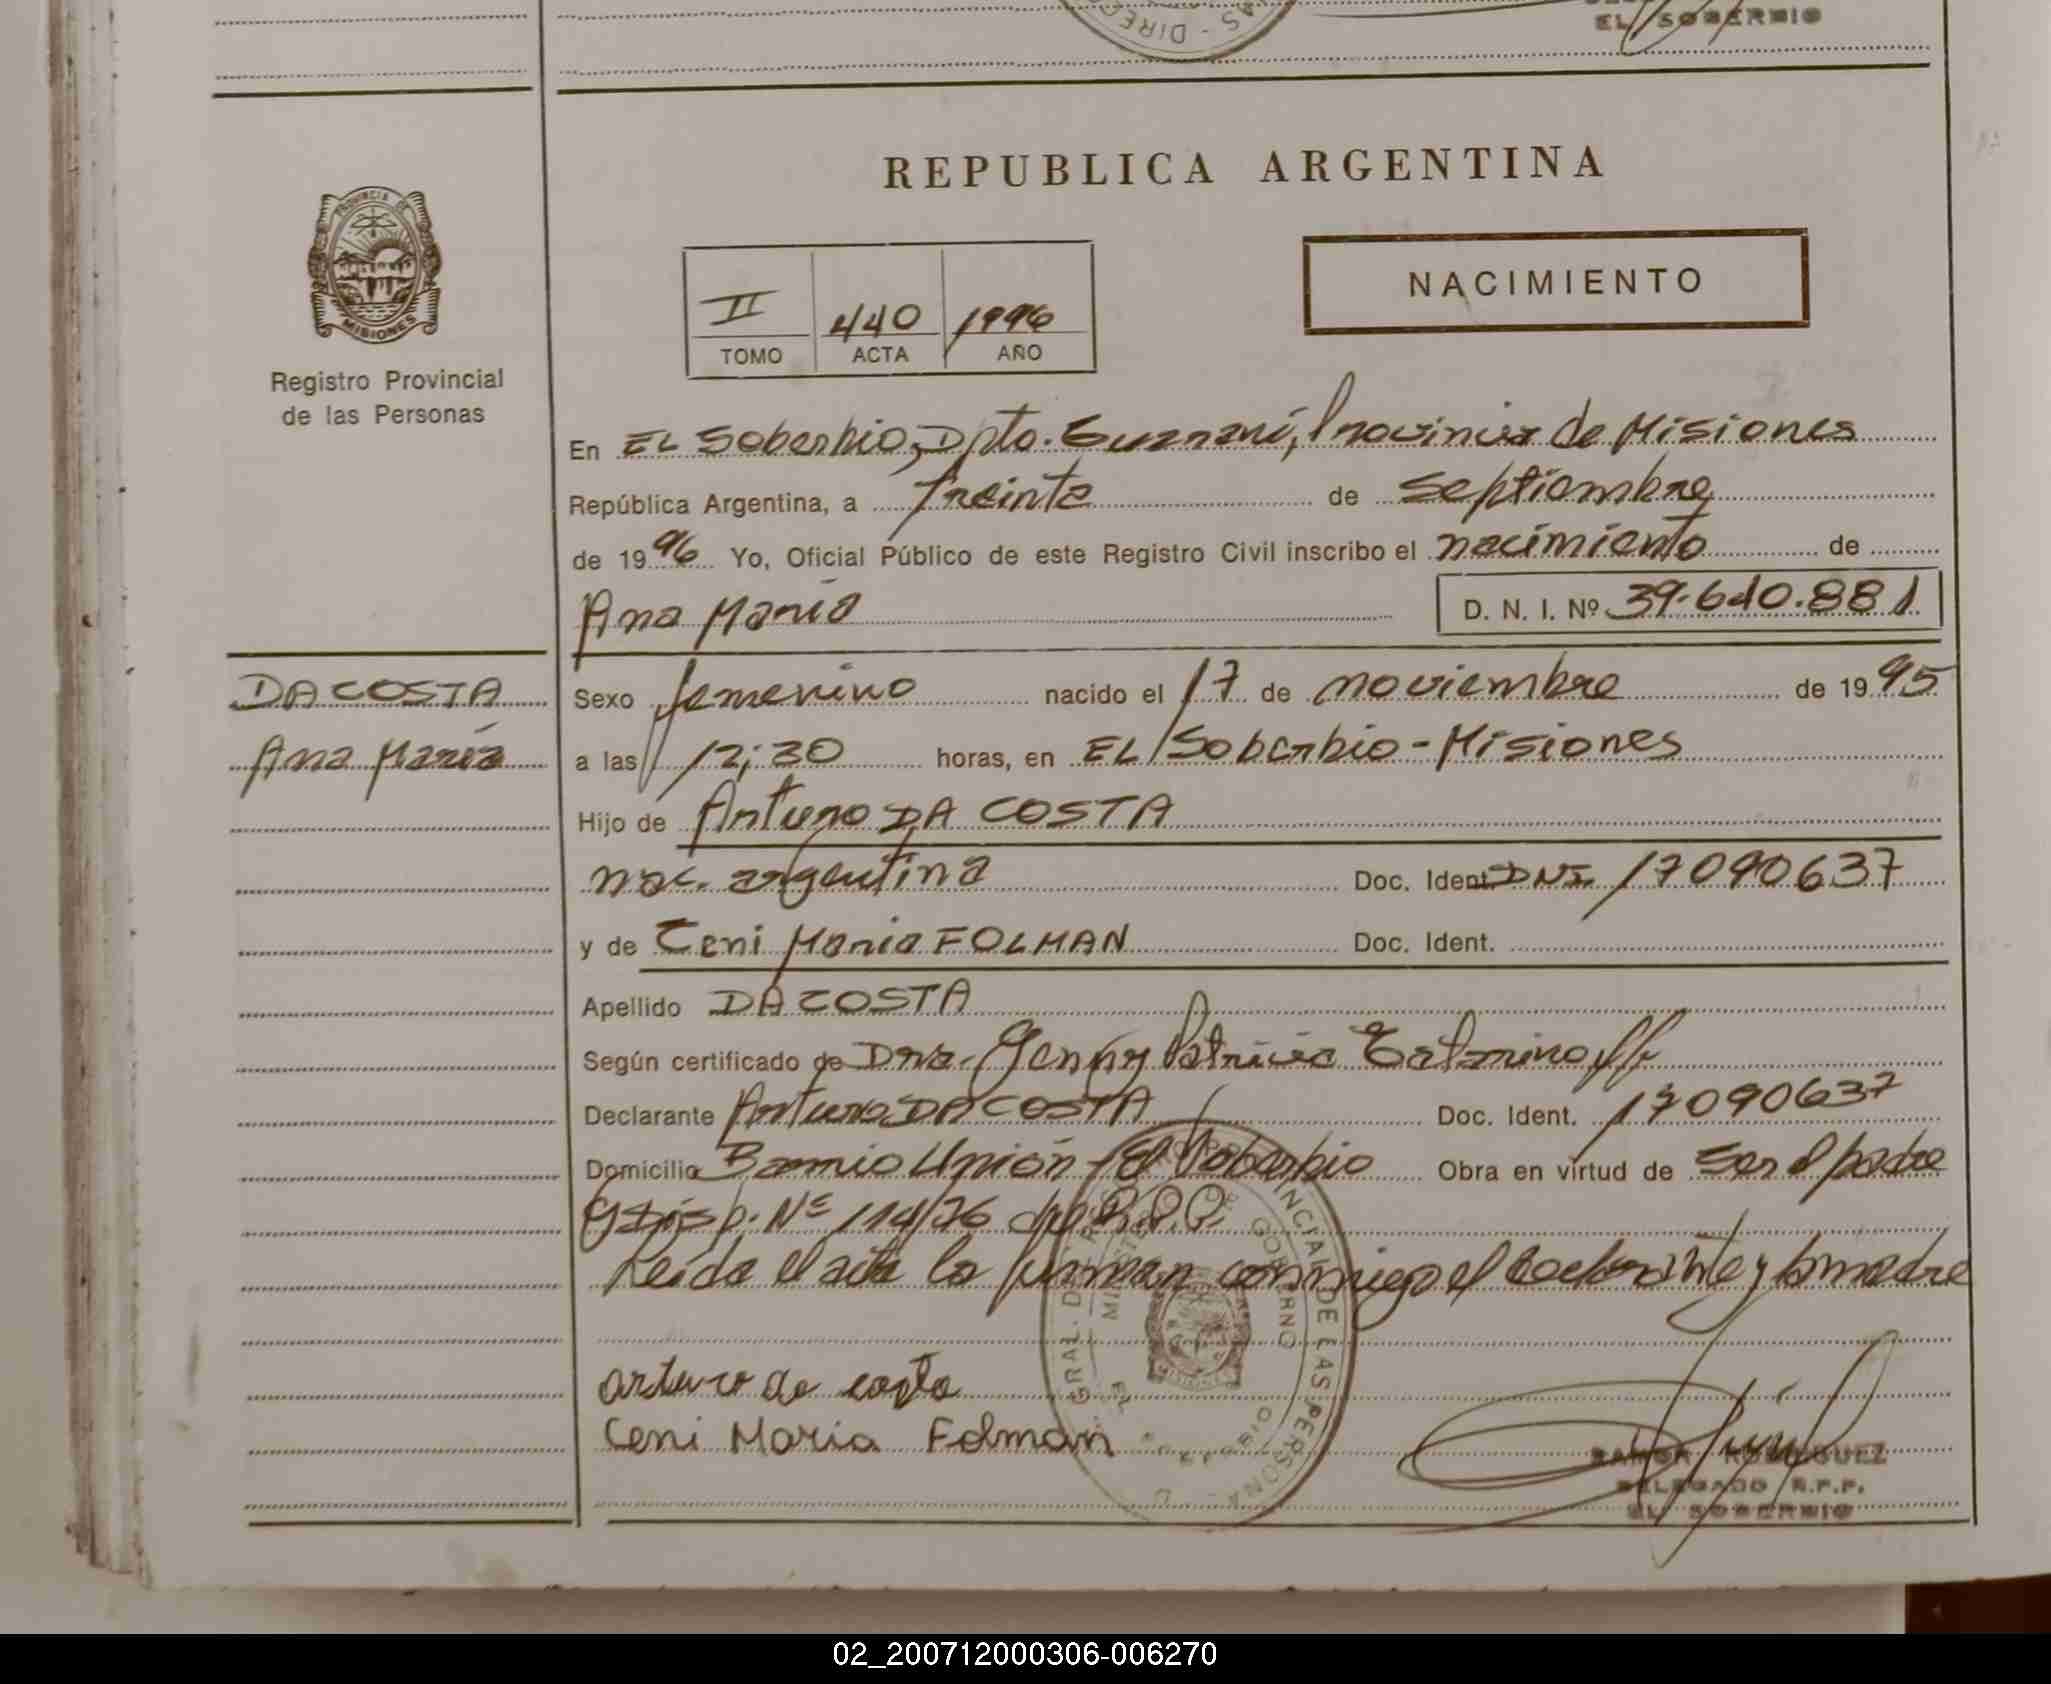 EL SOBERBIO
REPUBLICA ARGENTINA
PROVINCIA DE
MISIONES
Registro Provincial
de las Personas
NACIMIENTO
II 440 1996
TOMO ACTA AÑO
En EL Soberbio, Dpto. Guaraní, Provincia de Misiones
República Argentina, a treinta de septiembre
de 1996 Yo, Oficial Público de este Registro Civil inscribo el nacimiento de
Ana María D. N. I. Nº 39.640.881
DA COSTA
Ana María
Sexo femenino nacido el 17 de noviembre de 1995
a las 12:30 horas, en EL Soberbio - Misiones
Hijo de Arturo DA COSTA
nac. argentina Doc. Ident. DNI 17090637
y de Ceni Maria FOLMAN Doc. Ident.
Apellido DA COSTA
Según certificado de Dra. Genny Patricia
Declarante Arturo DA COSTA Doc. Ident. 17090637
Domicilio Barrio Unión - El Soberbio Obra en virtud de ser el padre
y Disp. Nº 114/76 del R.P.P.
Leída el acta la firman conmigo el declarante y la madre
arturo da costa
Ceni Maria Folman
RAMON RODRIGUEZ
DELEGADO R.P.P.
EL SOBERBIO
02_200712000306-006270